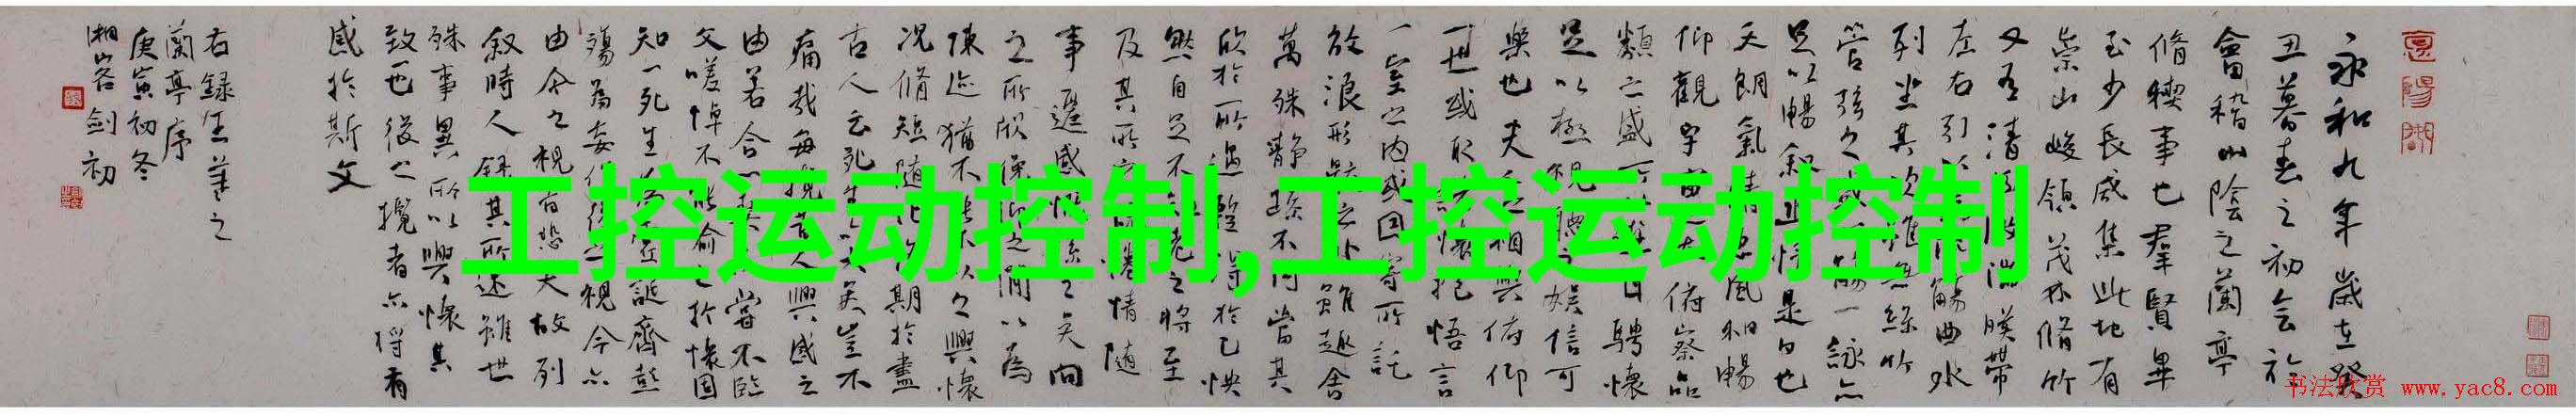 永和九年歲在癸
丑暮春之初会於
會稽山陰之蘭亭
脩稧事也羣賢畢
至少長咸集此地有
崇山峻領茂林脩竹
又有清流激湍暎帶
左右引以 觴曲水
列坐其次雖無絲竹
管弦之盛一觴一詠亦
足以暢叙幽情是日也
天朗氣清惠風和暢
仰觀宇宙之大俯察品
類之盛所以遊目騁懷
足以極視聽之娱信可
樂也夫人之相與俯仰
一世或取諸懷抱悟言
一室之内或因寄所託
放浪形骸之外雖趣舍
萬殊静躁不同當其
欣於所遇暫得於己怏
然自足不知老之將至
及其所之既惓情随
事遷感慨係之矣向
之所欣俛仰之間以為
陳迹猶不能不以之興懷
况脩短随化終期於盡
古人云死生亦大矣豈不
痛哉每攬昔人興感之
由若合一契未嘗不臨
文嗟悼不能喻之於懷固
知一死生為虛誕齊彭
殤為妄作後之視今亦
由今之視昔悲夫故列
叙時人録其所述雖世
殊事異所以興懷其
致一也後之攬者亦将有
感於斯文
右録王羲之
蘭亭序
庚寅初冬
湘客剑初
工控运动控制,工控运动控制
书法欣赏 www.yac8.com